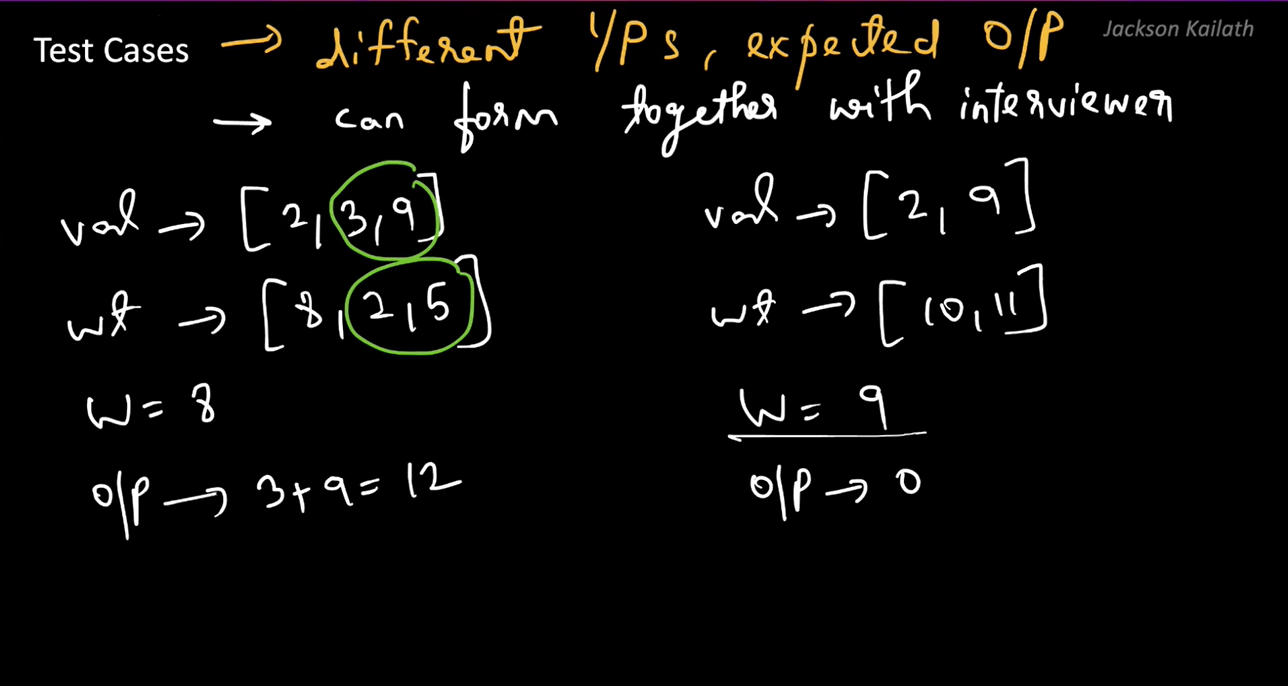 Test Cases → different I/Ps, expected O/P
Jackson Kailath
→ can form together with interviewer
val → [2, 3, 9]
wt → [8, 2, 5]
W = 8
O/P → 3+9= 12
val → [2, 9]
wt → [10, 11]
W = 9
O/P → 0